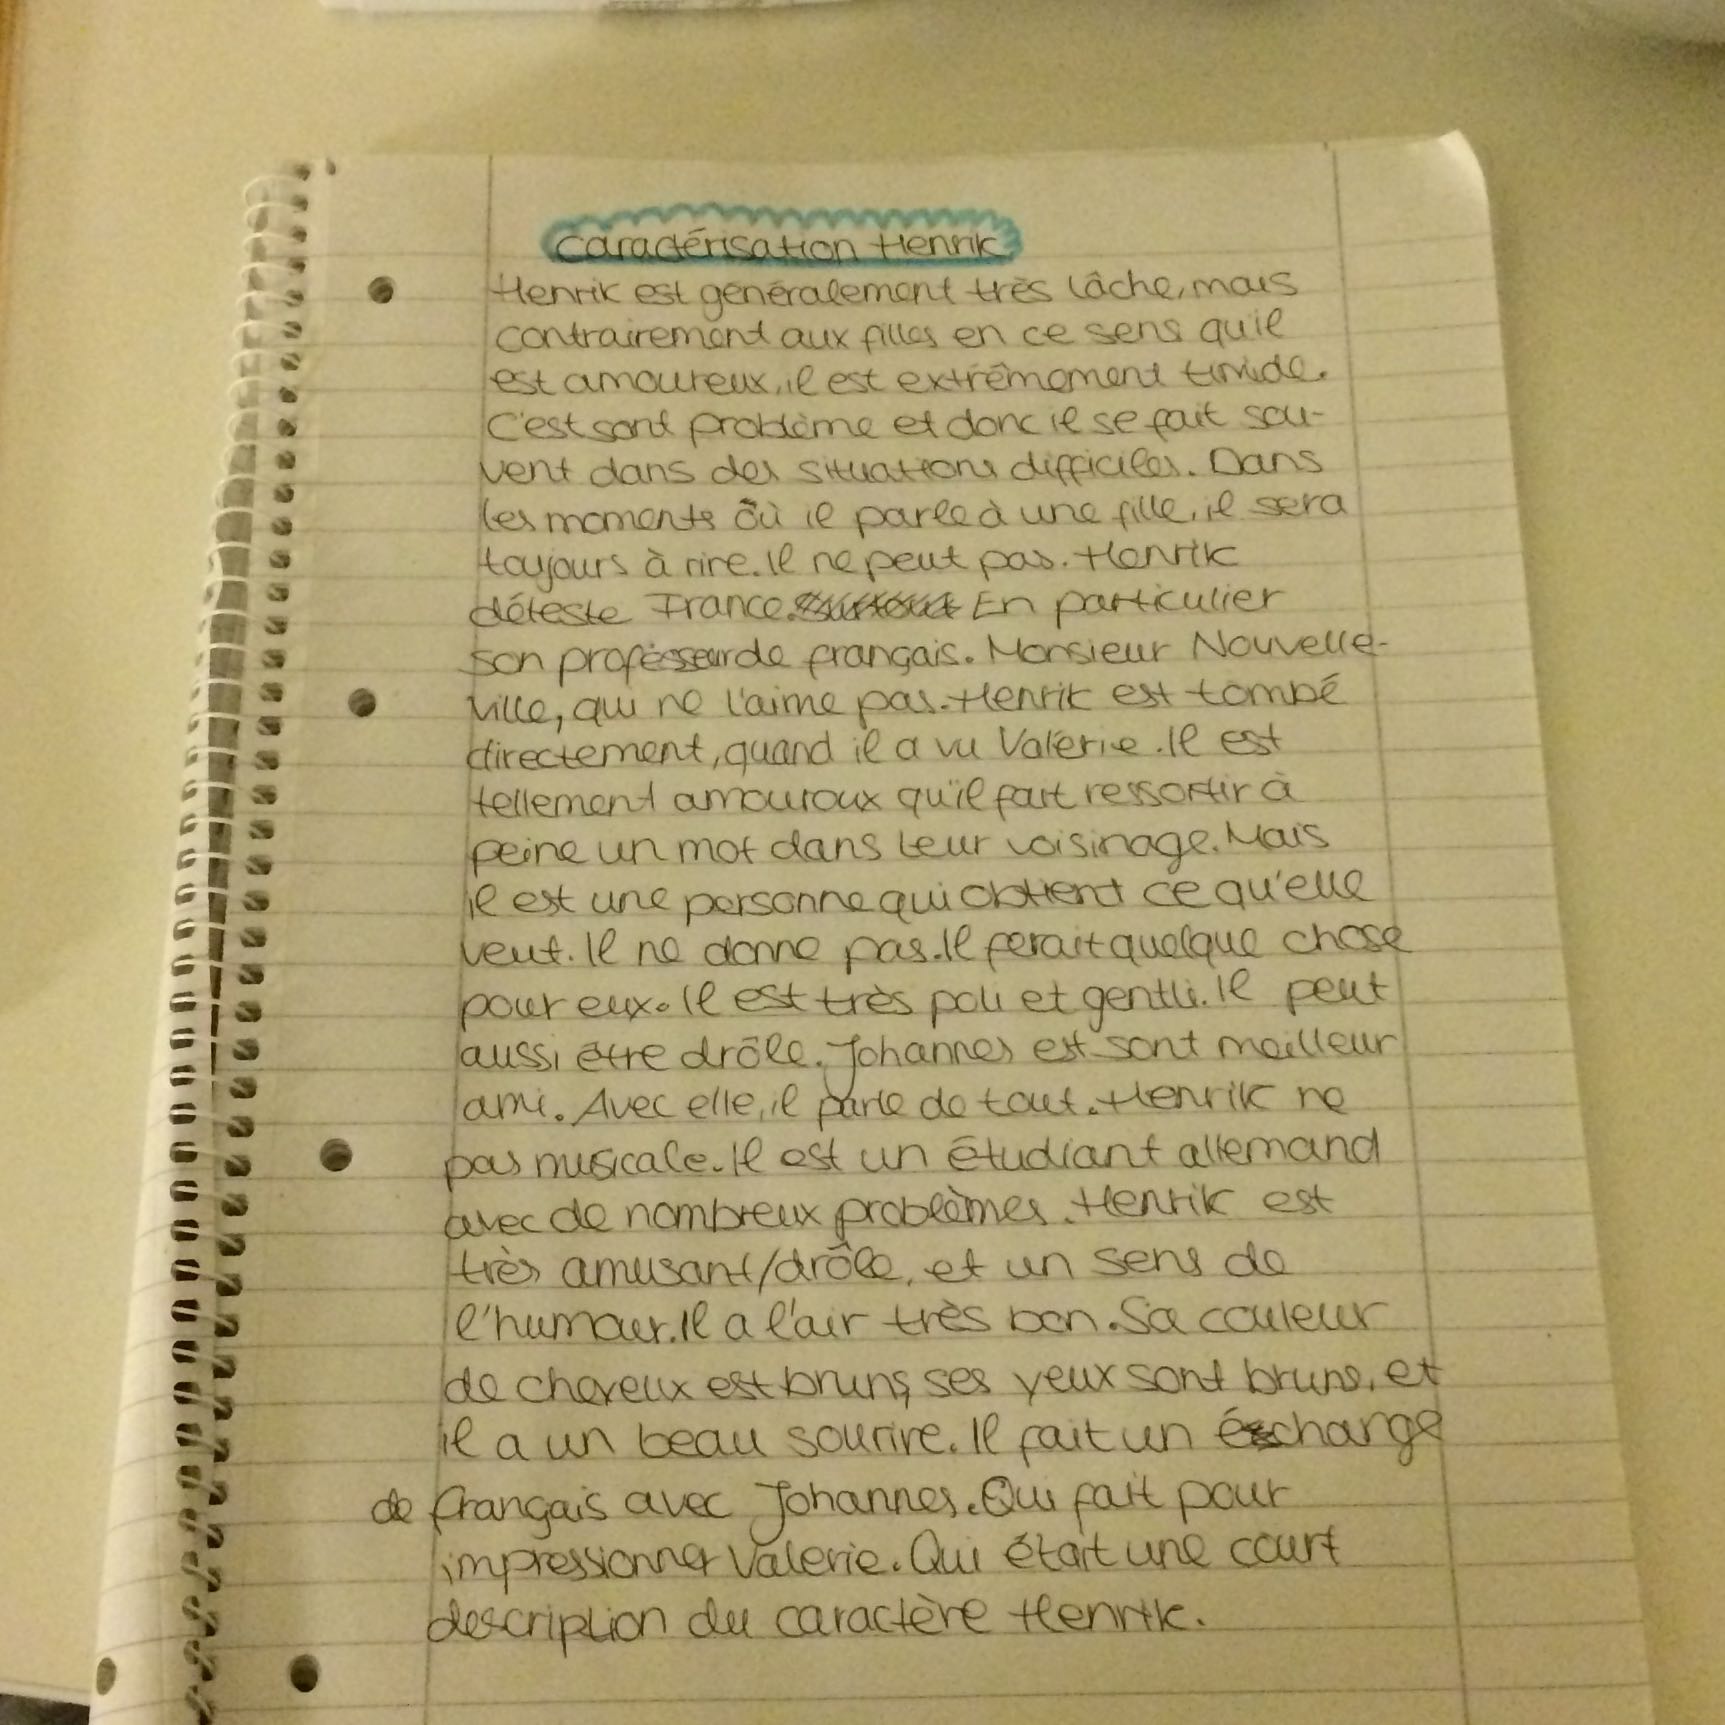 Caractérisation Henrik
Henrik est généralement très lâche, mais
contrairement aux filles en ce sens qu'il
est amoureux, il est extrêmement timide.
C'est sont problème et donc il se fait sou-
vent dans des situations difficiles. Dans
les moments où il parle à une fille, il sera
toujours à rire. Il ne peut pas. Henrik
déteste France. En particulier
son professeur de français. Monsieur Nouvelle-
ville, qui ne l'aime pas. Henrik est tombé
directement, quand il a vu Valérie. Il est
tellement amouroux qu'il fait ressortir à
peine un mot dans leur voisinage. Mais
il est une personne qui obtient ce qu'elle
veut. Il ne donne pas. Il ferait quelque chose
pour eux. Il est très poli et gentli. Il peut
aussi être drôle. Johannes est sont meilleur
ami. Avec elle, il parle de tout. Henrik ne
pas musicale. Il est un étudiant allemand
avec de nombreux problèmes. Henrik est
très amusant/drôle, et un sens de
l'humour. Il a l'air très bon. Sa couleur
de cheveux est bruns, ses yeux sont bruns, et
il a un beau sourire. Il fait un échange
de français avec Johannes. Qui fait pour
impressionner Valerie. Qui était une court
description du caractère Henrik.